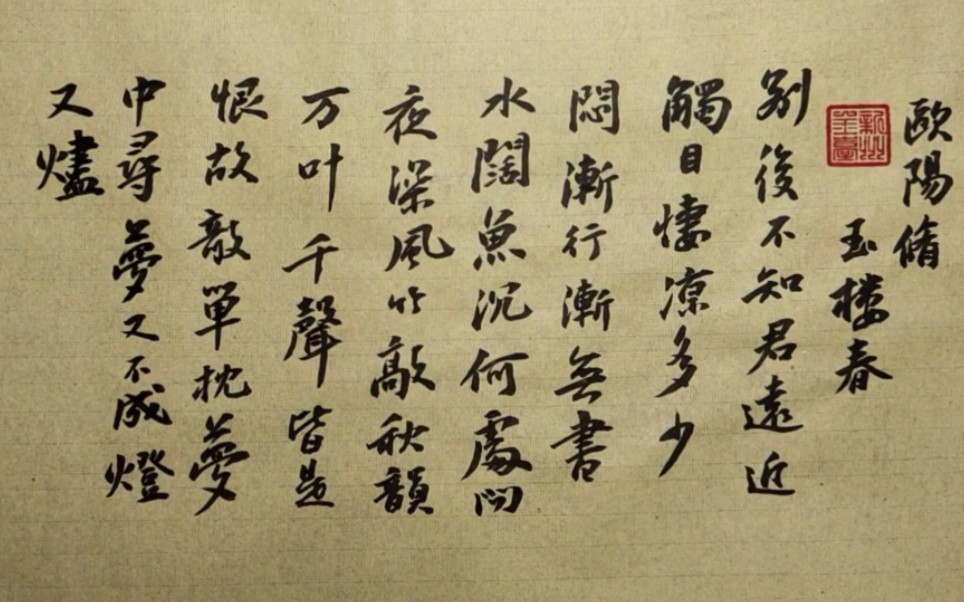 歐陽脩
玉楼春
別後不知君遠近
觸目悽涼多少
悶漸行漸無書
水闊魚沉何處問
夜深風竹敲秋韻
万叶千聲皆是
恨故敧單枕夢
中尋夢又不成燈
又燼